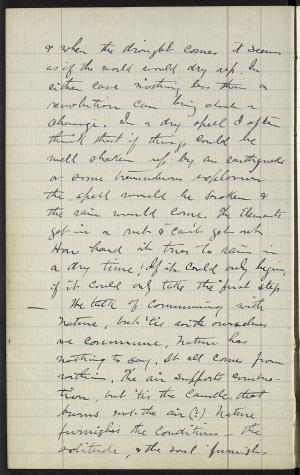 & when the drought comes it seems
as if the world would dry up. In
either case nothing less than a
revolution can bring about a
change. In a dry spell I often
think that if things could be
well shaken up by an earthquake
or some tremendous explosion
the spell would be broken &
the rain would come. The elements
get in a rut & can't get out.
How hard it tries to rain in
a dry time! If it could only begin,
if it could only take the first step.
— We talk of communing with
Nature, but 'tis with ourselves
we commune. Nature has
nothing to say. It all comes from
within. The air supports combus-
tion, but 'tis the candle that
burns not the air (?) Nature
furnishes the conditions – the
solitude, & the soul furnishes